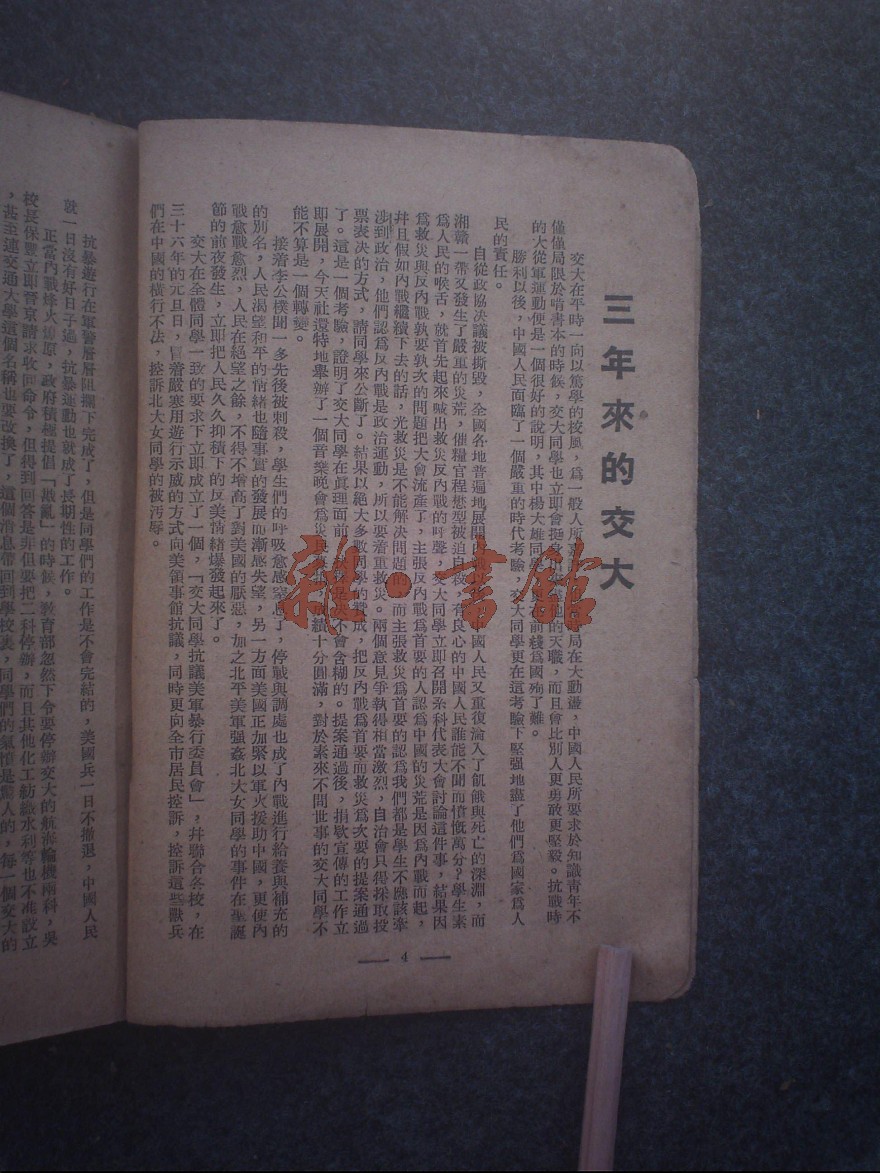 三年來的交大
交大在平時一向以篤學的校風，為一般人所
局在大動盪，中國人民所要求於知識靑年不
僅僅局限於啃書本的時候，交大同學也立卽會挺身
的天職，而且會比別人更勇敢更堅毅。抗戰時
的大從軍運動便是一個很好的說明，其中楊大雄同學
在前綫為國殉了難。
勝利以後，中國人民面臨了一個嚴重的時代考驗，交大同學更在這考驗下堅强地盡了他們為國家為人
民的責任。
自從政協決議被撕毀，全國各地普遍地展開內
國人民又重復淪入了飢餓與死亡的深淵，而
湘贛一帶又發生了嚴重的災荒，催糧官程懋型被迫自殺，有良心的中國人民誰能不聞而憤慨萬分？學生素
為人民的喉舌，就首先起來喊出救災反內戰的呼聲，交大同學立卽召開系科代表大會討論這件事，結果因
為救災與反內戰孰要孰次的問題把大會流產了，主張反內戰為首要的人認為中國的災荒是因為內戰而起，
幷且假如內戰繼續下去的話，光救災是不能解決問題的，而主張救災為首要的認為我們都是學生不應該牽
涉到政治，他們認為反內戰是政治運動，所以要着重救災。兩個意見爭執得相當激烈，自治會只得採取投
票表决的方式，請同學來公斷了。結果以絕大多數同學的贊成，把反內戰為首要而救災為次要的提案通過
了。這是一個考驗，證明了交大同學在眞理面前
不會含糊的。提案通過後，捐欵宣傳的工作立
卽展開，今天社還特地舉辦了一個音樂晚會為災民
成績十分圓滿，對於素來不問世事的交大同學不
能不算是一個轉變。
接着李公樸聞一多先後被刺殺，學生們的呼吸愈感窒息了，停戰與調處也成了內戰進行給養與補充的
的別名，人民渴望和平的情緒也隨事實的發展而漸感失望，另一方面美國正加緊以軍火援助中國，更使內
戰愈戰愈烈，人民在絕望之餘，不得不增高了對美國的厭惡，加之北平美軍强姦北大女同學的事件在聖誕
節的前夜發生，立卽把人民久久抑積下的反美情緒爆發起來了。
交大在全體同學一致的要求下立卽成立了一個，「交大同學抗議美軍暴行委員會」，幷聯合各校，在
三十六年的元旦日，冒着嚴寒用遊行示威的方式向美領事館抗議，同時更向全市居民控訴，控訴這些獸兵
們在中國的橫行不法，控訴北大女同學的被污辱。
4
抗暴遊行在軍警層層阻攔下完成了，但是同學們的工作是不會完結的，美國兵一日不撤退，中國人民
就一日沒有好日子過，抗暴運動也就成了長期性的工作。
正當內戰烽火燎原，政府積極提倡「戡亂」的時候，敎育部忽然下令要停辦交大的航海輪機兩科，吳
校長保豐立卽晉京請求收回命令，但得到回答是非但要把二科停辦，而且其他化工紡織水利等也不准設立
，甚至連交通大學這個名稱也要改換了，這個消息帶回到學校裏，同學們的氣憤是驚人的，每一個交大的
雜·書館